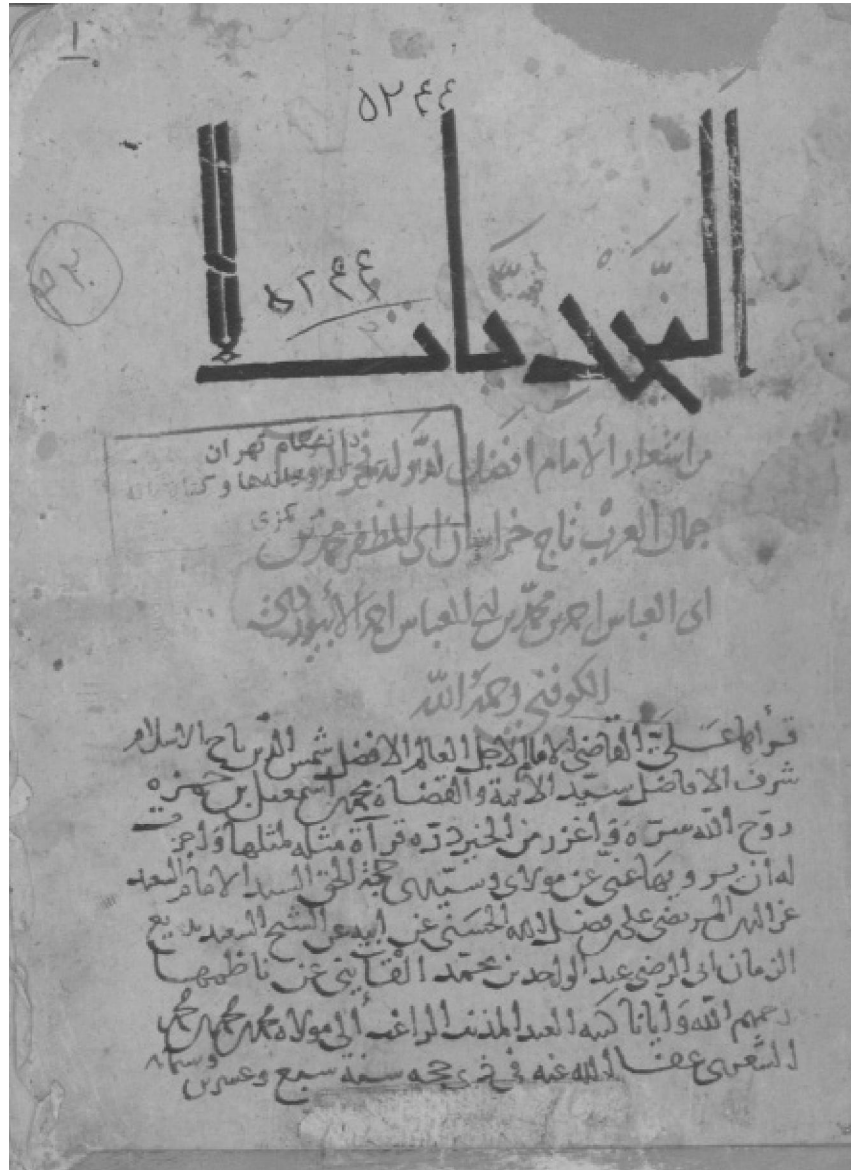 ١
٥٢٤٤
النجديات
٥٢٤٤
٥٣٠
دانشگاه تهران
كتابخانه
مركزى
من اشعار الامام افضل الدولة
جمال العرب تاج خراسان ابى المظفر محمد بن
ابى العباس احمد بن محمد بن ابى العباس احمد الأبيوردى
الكوفنى رحمه الله
قرأها على القاضى الامام الاجل العالم الافضل شمس الدين تاج الاسلام
شرف الافاضل سيد الائمة والقضاة محمد بن اسمعيل بن حمزه
روّح الله سرّه واغزر من الخير درّه قرآة مثله لمثلها واجزت
له ان يرويها عنى عن مولاى وسيدى حجة الحق السيد الامام السعيد
عز الدين المرتضى على بن فضل الله الحسنى عن ابيه عن الشيخ السعيد بديع
الزمان ابى الرضى عبد الواحد بن محمد القاينى عن ناظمها
رحمهم الله وايانا كتبه العبد المذنب الراغب الى مولاه محمد بن محمد بن محمد
الشعرى عفا الله عنه فى ذى حجه سنة سبع وعشرين وستمائه